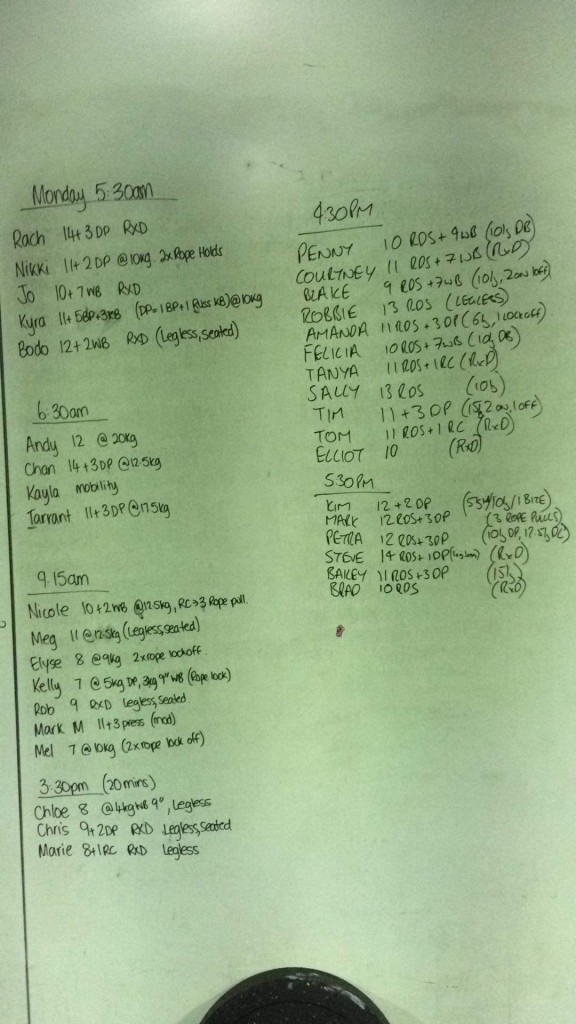 Monday 5:30am
Rach 14+3DP RXD
Nikki 11+2DP @10kg. 2xRope Holds
Jo 10+7WB RXD
Kyra 11+5BP+3KB (DP=1BP+1 KB)@10kg
Bodo 12+2WB RXD (Legless, seated)
6:30am
Andy 12 @20kg
Chan 14+3DP @12.5kg
Kayla mobility
Tarrant 11+3DP@17.5kg
9.15am
Nicole 10+2WB @12.5kg, RC→3 Rope pull.
Meg 11 @12.5kg (Legless, seated)
Elyse 8 @9kg 2xrope lockoff.
Kelly 7 @5kg DP, 3kg 9" WB (Rope lock)
Rob 9 RXD Legless, Seated.
Mark M 11+3 press (mod)
Mel 7 @10kg (2xrope lock off)
3:30pm (20mins)
Chloe 8 @4kg WB 9", Legless
Chris 9+2DP RXD Legless, Seated
Marie 8+1RC RXD Legless
4:30PM
PENNY 10 RDS + 4WB (10), DB)
COURTNEY 11 RDS + 7WB (RxD)
BLAKE 9 RDS + 7WB (10), 2on 1off)
ROBBIE 13 RDS (LEGLESS)
AMANDA 11RDS + 3DP (6), 1 LOCKOFF)
FELICIA 10RDS + 7WB (10), DB)
TANYA 11RDS + 1RC (RxD)
SALLY 13 RDS (10)
TIM 11+3 DP (15), 2on, 1off)
TOM 11 RDS + 1 RC (RxD)
ELLIOT 10 (RxD)
5:30PM
KIM 12+2DP
MARK 12RDS+3DP (3 ROPE PULLS)
PETRA 12 RDS+3DP
STEVE 14 RDS+1DP (legless) (RxD)
BAILEY 11RDS+3DP (15)
BRAD 10RDS (RxD)